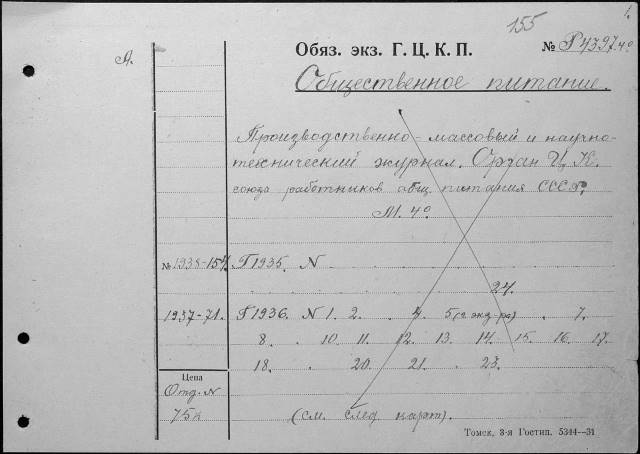 155
1.
А.
Обяз. экз. Г. Ц. К. П. № Р4397 4º
Общественное питание.
Производственно-массовый и научно-
технический журнал. Орган Ц. К.
союза работников общ. питания СССР.
М. 4º
№ 1938-154 Г 1935. N
24.
1937-71. Г 1936. N 1. 2. 4. 5 (2 экз-ра) . 7.
8. . 10. 11. 12. 13. 14. 15. 16. 17.
18. . 20. 21. . 23.
Цена
Отд. N
75к
(см. след. карт).
Томск, 3-я Гостип. 5344—31